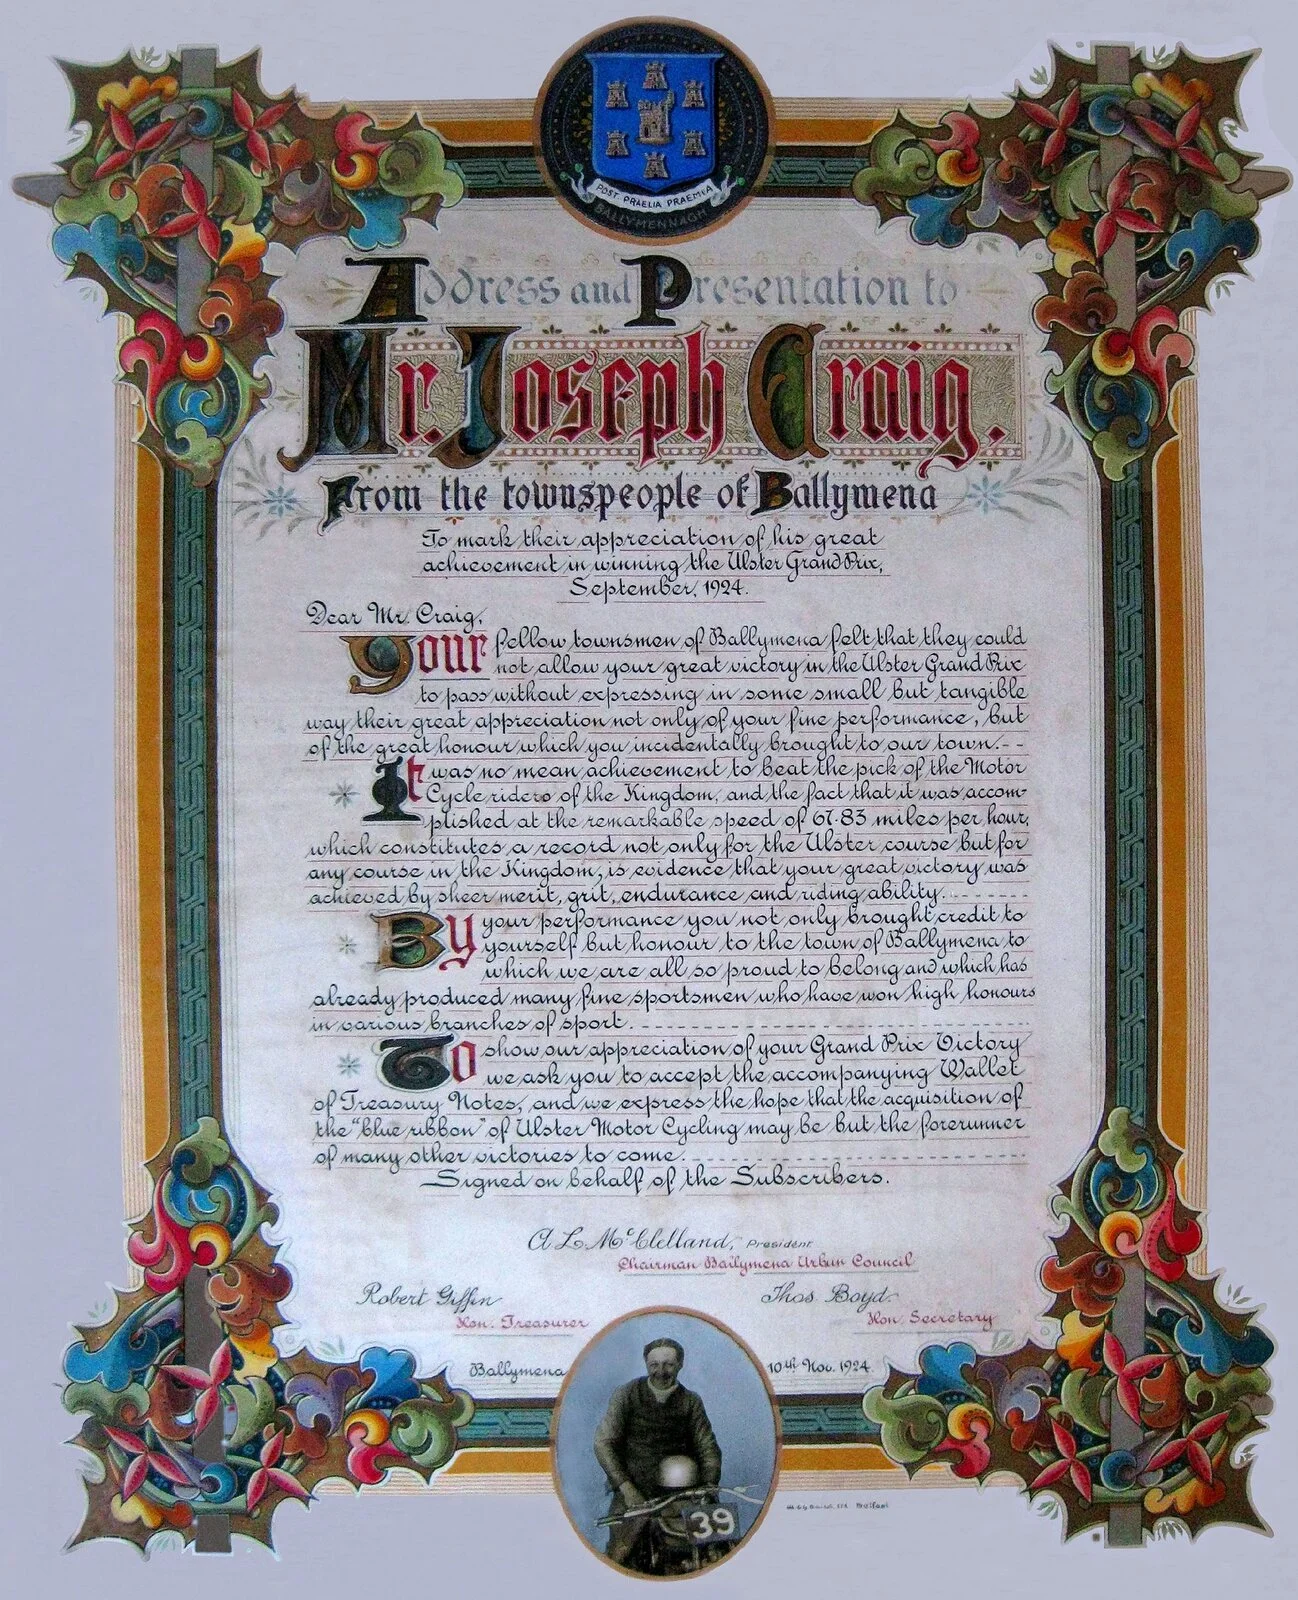 POST PRAELIA PRAEMIA
BALLYMENNAGH
Address and Presentation to
Mr. Joseph Craig.
From the townspeople of Ballymena
To mark their appreciation of his great
achievement in winning the Ulster Grand Prix,
September, 1924.
Dear Mr. Craig,
Your fellow townsmen of Ballymena felt that they could
not allow your great victory in the Ulster Grand Prix
to pass without expressing in some small but tangible
way their great appreciation not only of your fine performance, but
of the great honour which you incidentally brought to our town.--
It was no mean achievement to beat the pick of the Motor
Cycle riders of the Kingdom, and the fact that it was accom-
plished at the remarkable speed of 67.83 miles per hour,
which constitutes a record not only for the Ulster course but for
any course in the Kingdom, is evidence that your great victory was
achieved by sheer merit, grit, endurance and riding ability.
By your performance you not only brought credit to
yourself but honour to the town of Ballymena to
which we are all so proud to belong and which has
already produced many fine sportsmen who have won high honours
in various branches of sport.
To show our appreciation of your Grand Prix Victory
we ask you to accept the accompanying Wallet
of Treasury Notes, and we express the hope that the acquisition of
the "blue ribbon" of Ulster Motor Cycling may be but the forerunner
of many other victories to come.
Signed on behalf of the Subscribers.
A L McClelland, President
Chairman Ballymena Urban Council
Robert Giffin Thos Boyd
Hon. Treasurer Hon. Secretary
Ballymena 10th Nov. 1924.
39
Belfast